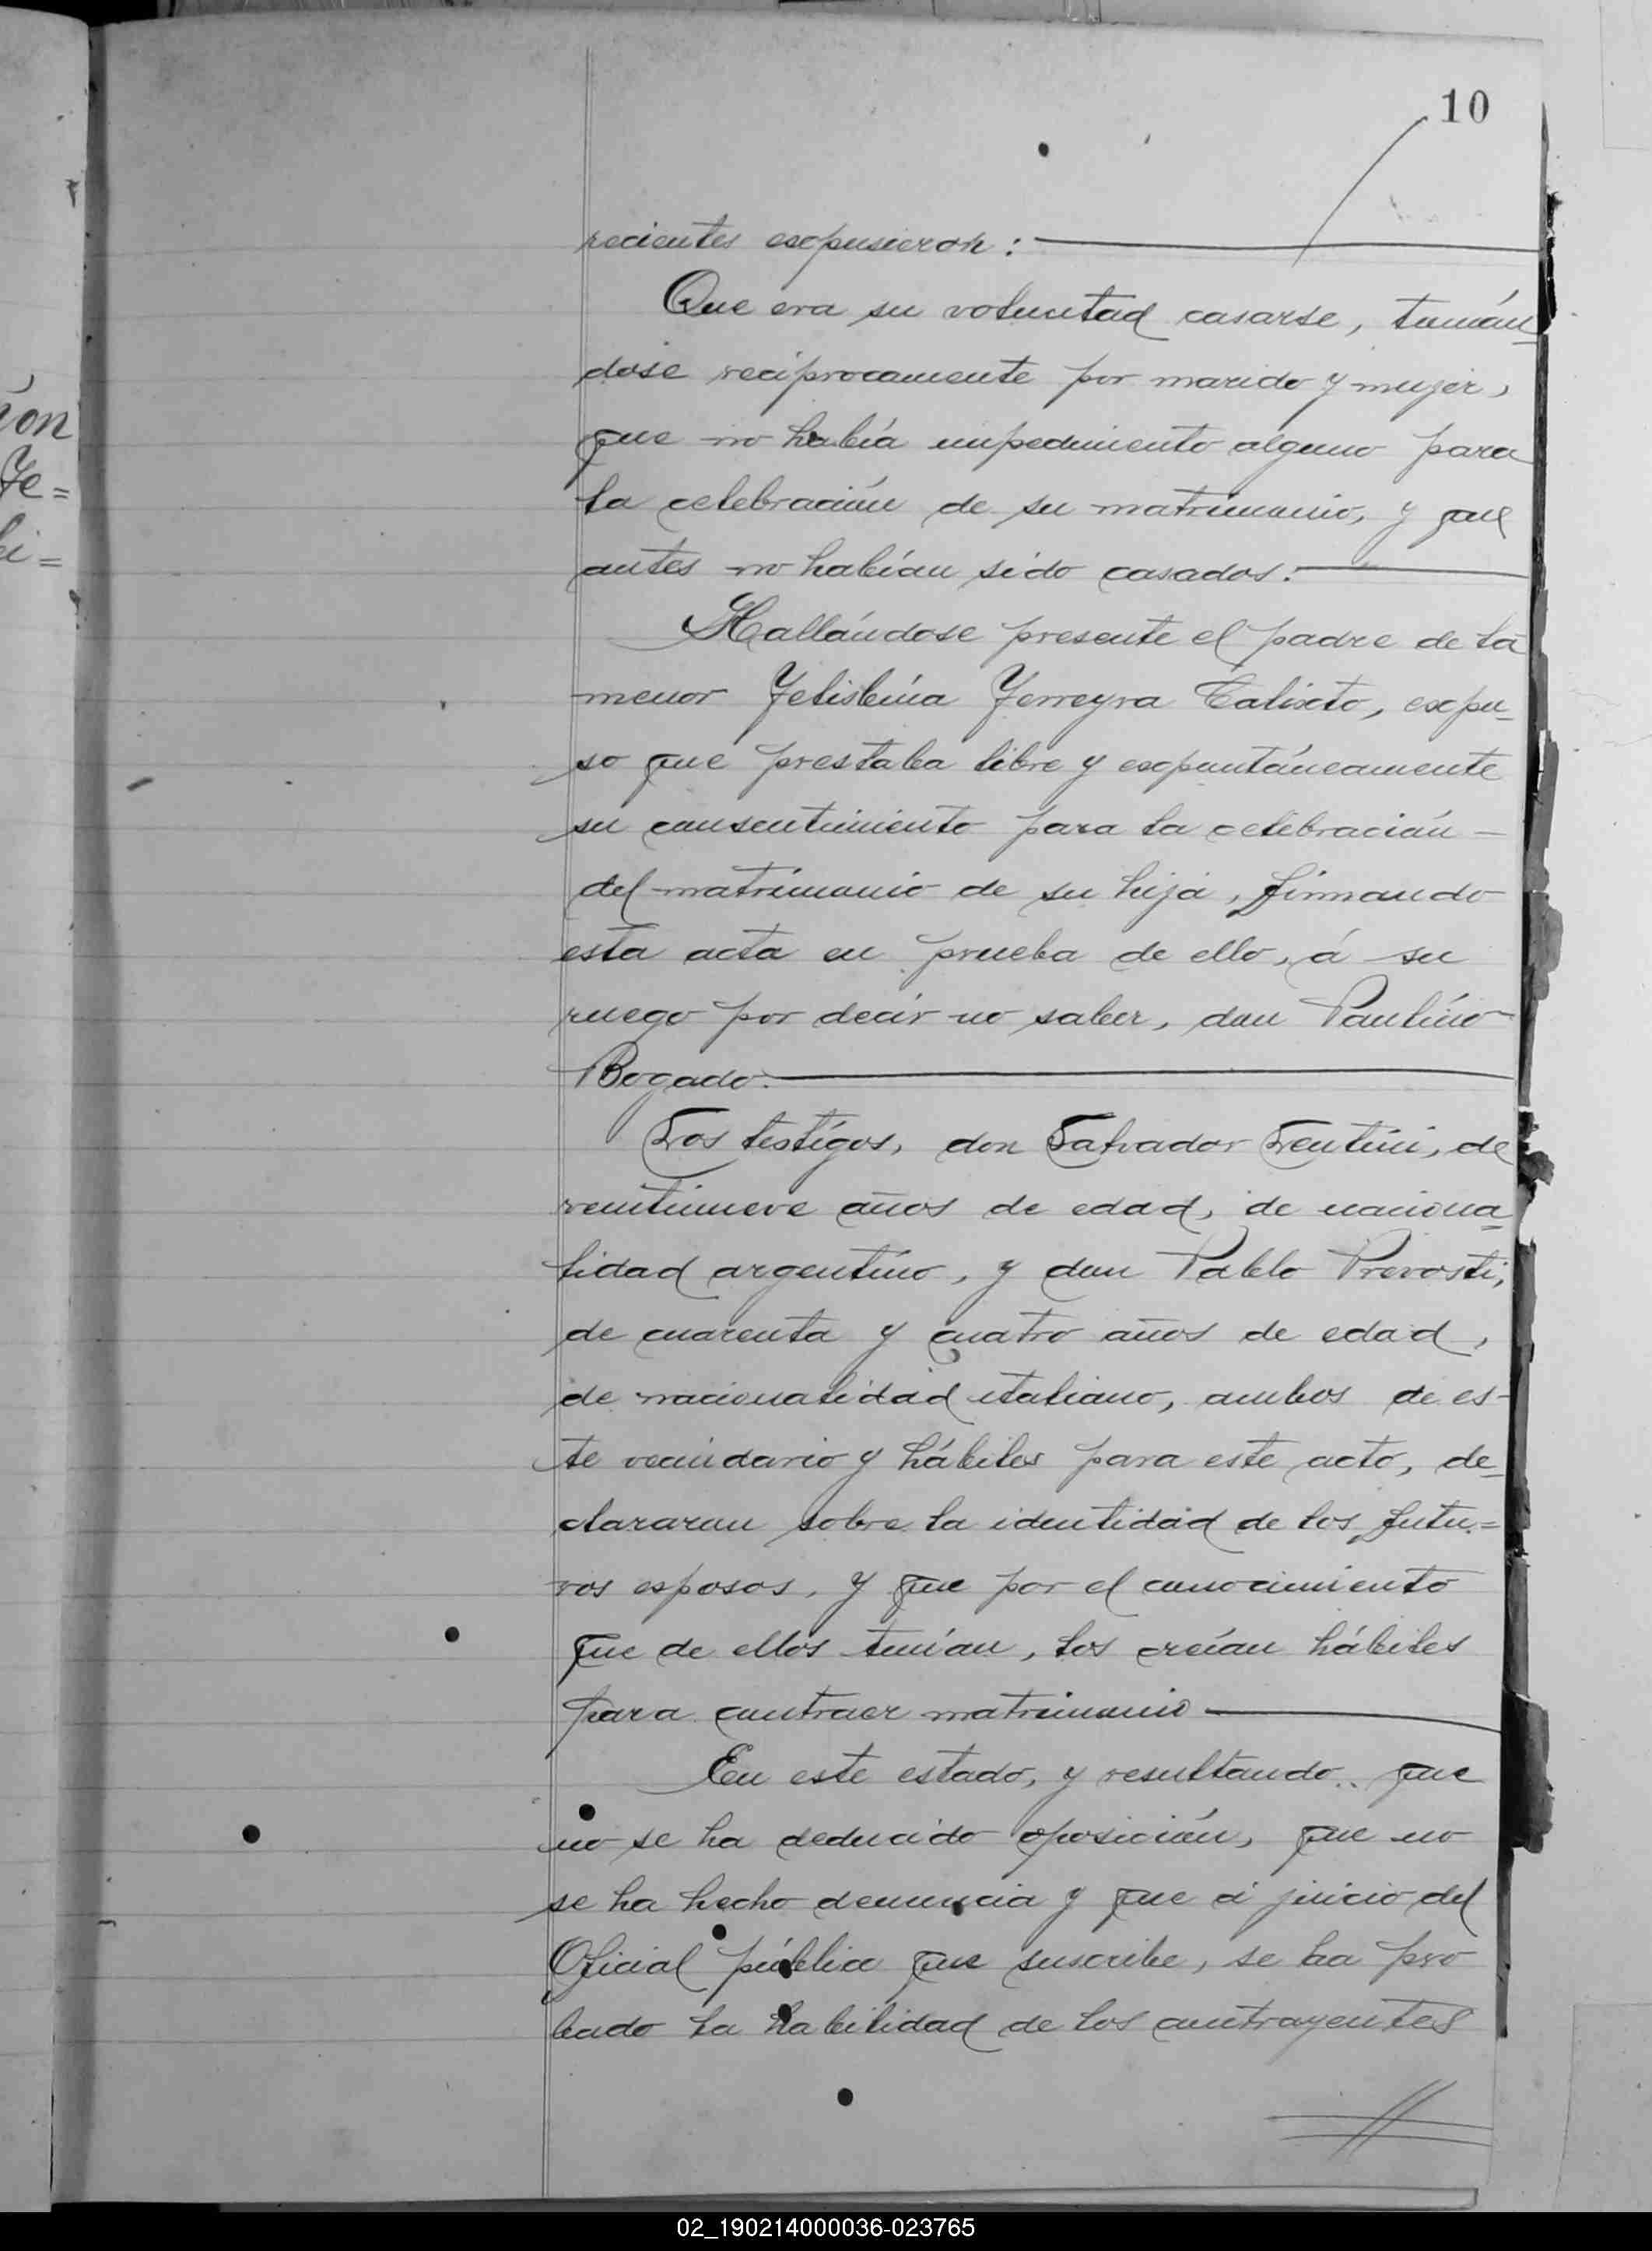 10
recientes expusieron:
Que era su voluntad casarse, tomán-
dose recíprocamente por marido y mujer,
que no había impedimento alguno para
la celebración de su matrimonio, y que
antes no habían sido casados.
Hallándose presente el padre de la
menor Felisbina Ferreyra Calixto, expu-
so que prestaba libre y expontáneamente
su consentimiento para la celebración
del matrimonio de su hija, firmando
esta acta en prueba de ello, á su
ruego por decir no saber, don Paulino
Bogado.
Los testigos, don Salvador Lentini, de
veintinueve años de edad, de naciona-
lidad argentino, y don Pablo Prevosti,
de cuarenta y cuatro años de edad,
de nacionalidad italiano, ambos de es-
te vecindario y hábiles para este acto, de-
clararon sobre la identidad de los futu=
ros esposos, y que por el conocimiento
que de ellos tenían, los creían hábiles
para contraer matrimonio
En este estado, y resultando que
no se ha deducido oposición, que no
se ha hecho denuncia y que á juicio del
Oficial público que suscribe, se ha pro
bado la habilidad de los contrayentes
ion
Fe=
bi=
02_190214000036-023765